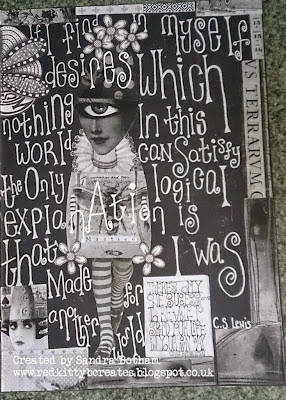 If I find in myself
desires which
nothing In this
world can Satisfy
the Only logical
explanAtion is
that I was
Made for
another world
C.S. Lewis
S TERRARUM
Created by Sandra Botham
www.redkittybcreates.blogspot.co.uk